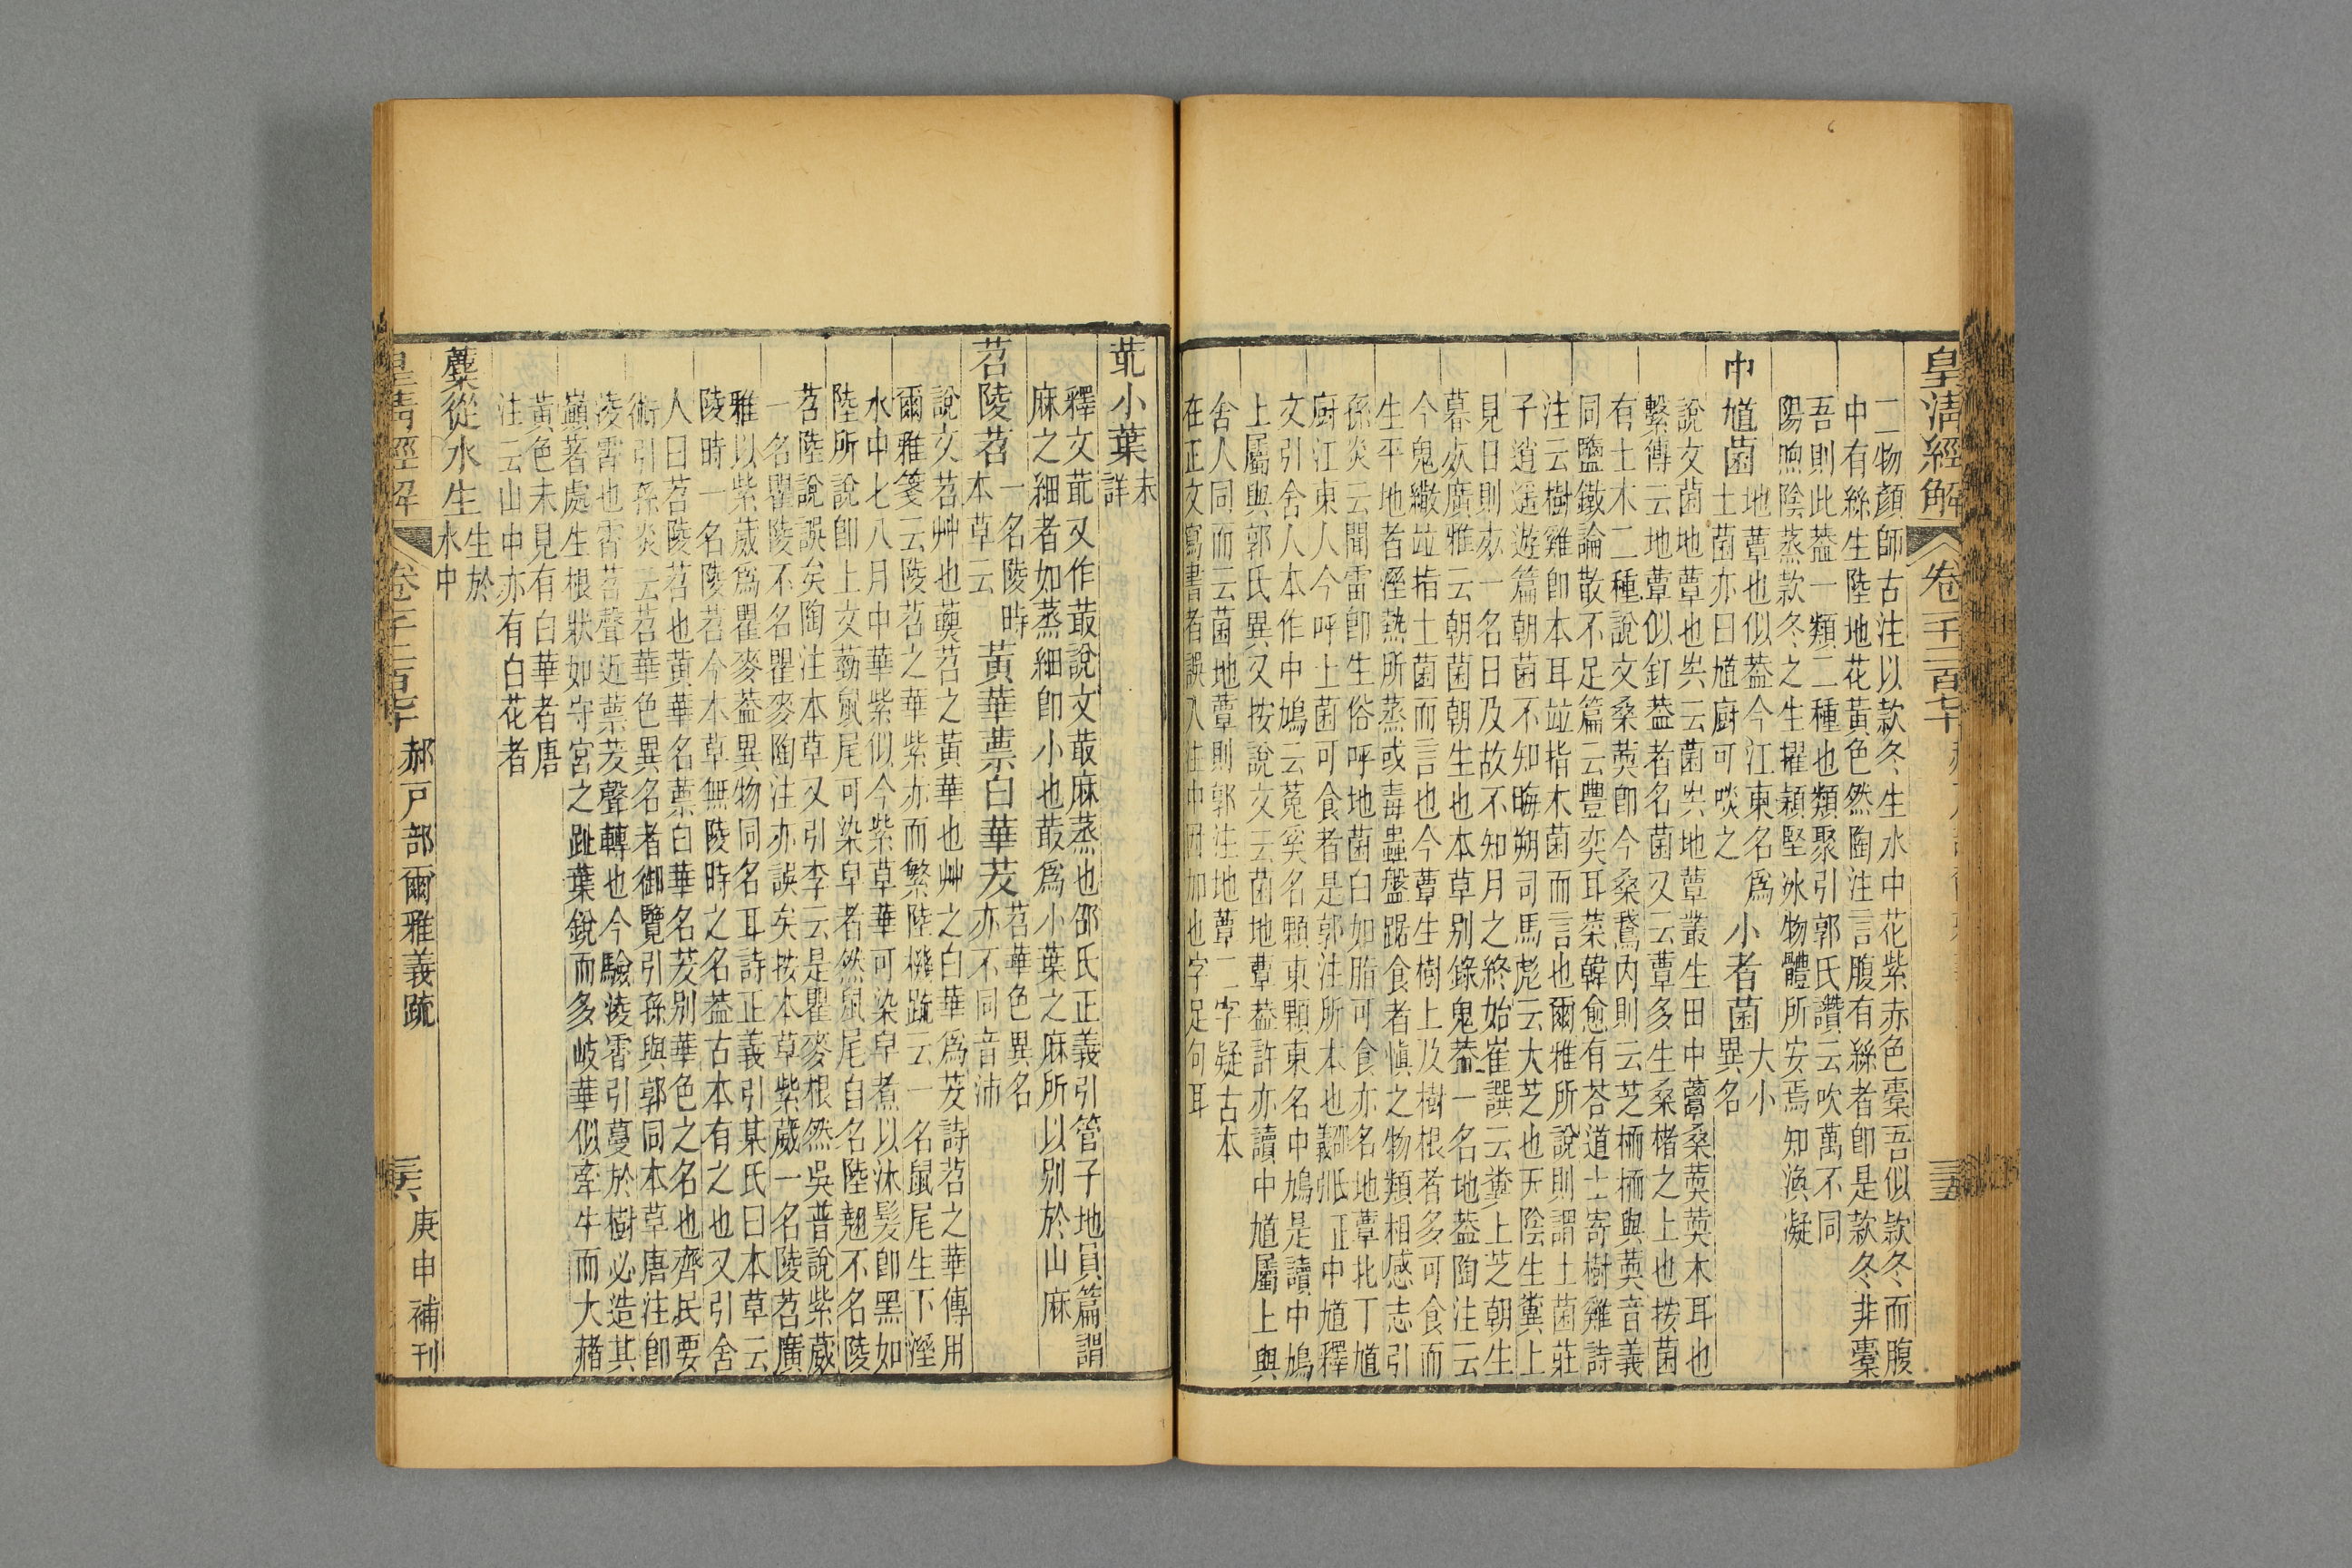 皇清經解 卷一千二百七十
二物顏師古注以款冬生水中花紫赤色橐吾似款冬而腹
中有絲生陸地花黃色然陶注言腹有絲者卽是款冬非橐
吾則此葢一類二種也類聚引郭氏讚云吹萬不同
陽煦陰蒸款冬之生擢穎堅冰物體所安焉知渙凝
中馗菌 地蕈也似葢今江東名爲
土菌亦曰馗厨可啖之 小者菌 大小
異名
說文菌地蕈也㒵云菌㒵地蕈叢生田中䕌桑䓴䓴木耳也
繫傳云地蕈似釘葢者名菌又云蕈多生桑楮之上也按菌
有土木二種說文桑䓴卽今桑鵞內則云芝栭栭與䓴音義
同鹽鐵論散不足篇云豐奕耳菜韓愈有荅道士寄樹雞詩
注云樹雞卽本耳竝指木菌而言也爾雅所說則謂土菌莊
子逍遙遊篇朝菌不知晦朔司馬彪云大芝也天陰生糞上
見日則㱙一名日及故不知月之終始崔譔云糞上芝朝生
暮㱙廣雅云朝菌朝生也本草別錄鬼葢一名地葢陶注云
今鬼繖竝指土菌而言也今蕈生樹上及樹根者多可食而
生平地者溼熱所蒸或毒蟲盤踞食者愼之物類相感志引
孫炎云聞雷卽生俗呼地菌白如脂可食亦名地蕈北丁馗
厨江東人今呼土菌可食者是郭注所本也鄴邸 中馗釋
文引舍人本作中鳩云菟奚名顆東顆東名中鳩是讀中鳩
上屬與郭氏異又按說文云菌地蕈葢許亦讀中馗屬上與
舍人同而云菌地蕈則郭注地蕈二字疑古本
在正文寫書者誤入注中因加也字足句耳
茿小葉 未
詳
釋文茿又作菆說文菆麻蒸也邵氏正義引管子地員篇謂
麻之細者如蒸細卽小也菆爲小葉之麻所以別於山麻
苕陵苕 一名陵時
本草云 黃華蔈白華茇 苕華色異名
亦不同音沛
說文苕艸也蔈苕之黃華也艸之白華爲茇詩苕之華傳用
爾雅箋云陵苕之華紫赤而繁陸機疏云一名鼠尾生下溼
水中七八月中華紫似今紫草華可染皁煮以沐髮卽黑如
陸所說卽上文葝鼠尾可染皁者然鼠尾自名陸翹不名陵
苕陸說誤矣陶注本草又引李云是瞿麥根然吳普說紫葳
一名瞿陵不名瞿麥陶注亦誤矣按本草紫葳一名陵苕廣
雅以紫葳爲瞿麥葢異物同名耳詩正義引某氏曰本草云
陵時一名陵苕今本草無陵時之名葢古本有之也又引舍
人曰苕陵苕也黃華名蔈白華名茇別華色之名也齊民要
術引孫炎云苕華色異名者御覽引孫與郭同本草唐注卽
淩霄也霄苕聲近蔈茇聲轉也今驗淩霄引蔓於樹必造其
巔著處生根狀如守宮之趾葉銳而多岐華似牽牛而大赭
黃色未見有白華者唐
注云山中亦有白花者
蘪從水生 生於
水中
皇清經解 卷一千二百七十 郝戶部爾雅義疏 庚申補刊